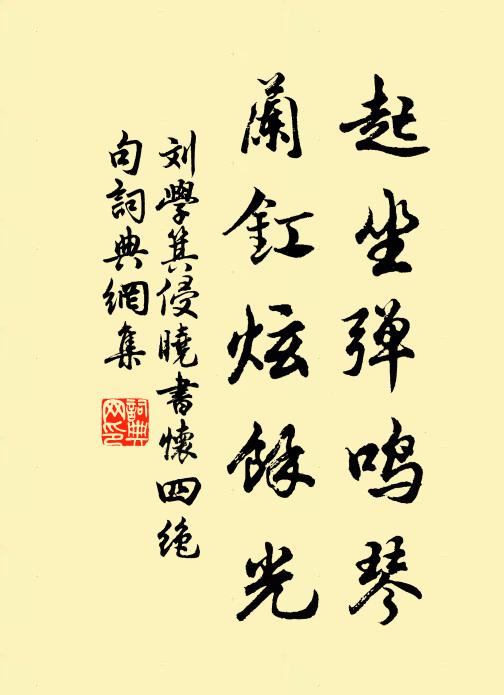 起坐弹鸣琴
蘭釭炫餘光
刘学箕侵曉書懷四絶
句詞典網集
詞典
网印